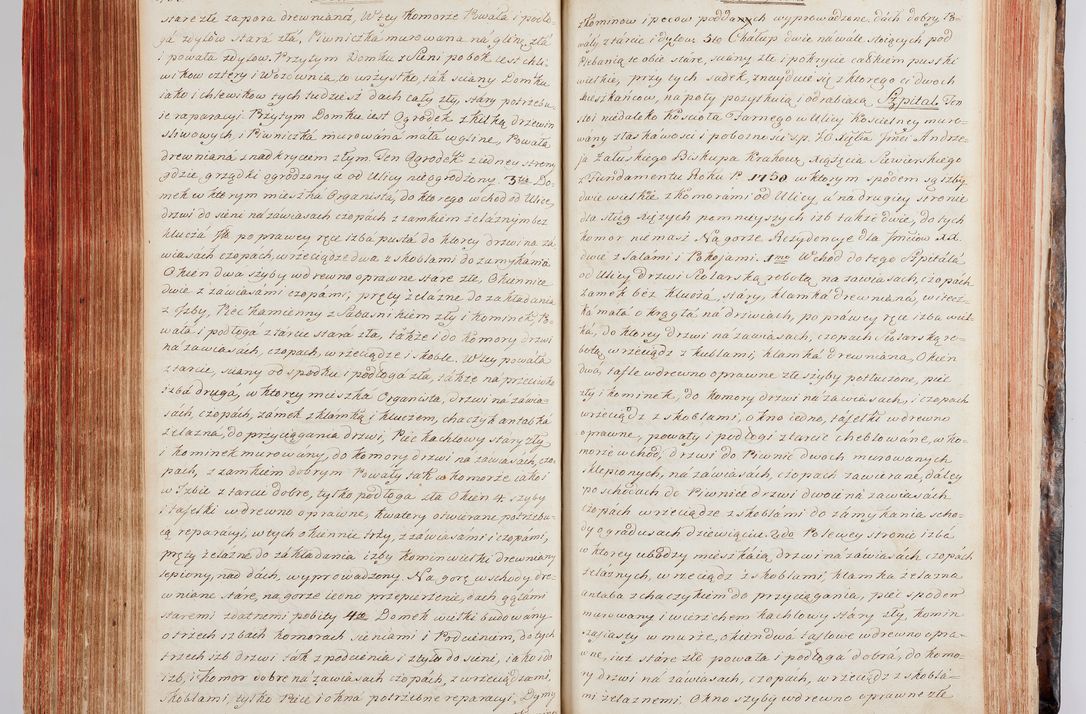 stare złe zapora drewniana, W tey komorze Powała i podło-
ga z dylow stara zła, Piwniczka murowana na glinę zła
i powała z dylow. Przytym Domku z Sieni pobok iest chle-
wikow cztery i Wozownia, to wszystko tak sciany Domku
iako i chlewikow tych tudziesz dach cały zły, stary potrzebu-
ie reparacyi. Przytym Domku iest Ogrodek z kilką drzewin
sliwowych i Piwniczka murowana mała w glinę, Powała
drewniana z nadkryciem złym. Ten Ogrodek z iedney strony
gdzie, grządki ogrodzony a od Ulicy nieogrodzony. 3tio Do-
mek w ktorym mieszka Organista, do ktorego wchod od Ulice,
drzwi do sieni na zawiasach czopach z zamkiem żelaznym bez
klucza po prawey ręce izba pusta do ktorey drzwi na za-
wiasach czopach, wrzeciądze dwa z skoblami do zamykania
Okien dwa szyby w drewno oprawne stare złe, Okiennice
dwie z zawiasami czopami, pręty żelazne do zakładania
z Izby, Piec kamienny z Szabasnikiem zły i kominek Po-
wała i podłoga z tarcic stara zła, także i do komory drzwi
na zawiasach, czopach, wrzeciądze i skoble. W tey powała
z tarcic, sciany od spodku i podłoga zła, także na przeciwko
izba druga, w ktorey mieszka Organista, drzwi na zawia-
sach, czopach, zamek z klamką i kluczem, chaczyk antabka
żelazna, do przyciągania drzwi, Piec kachlowy stary zły
i kominek murowany, do komory drzwi na zawiasach, czo-
pach, z zamkiem dobrym Powały tak w komorze iako i
w Izbie z tarcic dobre, tylko podłoga zła Okien 4. szyby
i tafelki w drewno oprawne, kwatery otwierane potrzebu-
ią reparacyi, w tych okiennic trzy, z zawiasami i czopami,
pręty żelazne do zakładania izby komin wielki drewniany
lepiony, nad dach, wyprowadzony. Na gorę wschody dre-
wniane stare, na gorze iedno przepierzenie, dach gątami
staremi zdatnemi pobity 4to Domek wielki budowany
o trzech izbach komorach sieniami i Podcieniem, do tych
trzech izb drzwi tak z podcienia i z tyłu do sieni, iako i do
izb, i komor dobre na zawiasach czopach, z wrzeciądzami,
skoblami, tylko Piece i okna potrzebne reparacyi, Dymy
kominow i pecow poddanych wyprowadzone, dach dobry Po-
wały z tarcic i dylow. 5to Chałup dwie na wale stoiących pod
Plebanią te obie stare, sciany złe i pokrycie całkiem pustki
wielkie, przy tych sadek, znayduie się z ktorego ci dwoch
mieszkańcow, na poły pozyskuią i odrabiaią. Szpital Ten
stoi niedaleko Koscioła Farnego w Ulicy Koscielney muro-
wany z łaskawosci i pobożnosci ś.p. Xiążęcia Jmci Andrze-
ja Załuskiego Biskupa Krakowa, Xiążęcia Siewierskiego
z Fundamentu Roku P. 1750 w ktorym spodem są izby
dwie wielkie z komorami od Ulicy, a na drugiey stronie
dla sług xiężych pomnieyszych izb także dwie, do tych
komor niemasz Na gorze Rezydencye dla Jmciow XX.
dwie z Salami i Pokojami. 1mo Wchod do tego Szpitala
od Ulicy drzwi Stolarską robotą na zawiasach, czopach
zamek bez klucza, stary, klamka drewniana, w rzecz-
ka mała okrągła na drzwiach, po prawey ręce izba wiel-
ka, do ktorey drzwi na zawiasach, czopach Stolarską ro-
botą wrzeciądz z kublami, klamka drewniana, Okien
dwa, tafle w drewno oprawne złe szyby potłuczone, piec
zły i kominek, do komory drzwi na zawiasach, i czopach
wrzeciądz z skoblami, okno iedno, tafelki w drewno
oprawne, powały i podłogi z tarcic cheblowane, w ko-
morze wchod, drzwi do Piwnic dwoch murowanych
sklepionych, na zawiasach, czopach zawierane, daley
po schodach do Piwnice drzwi dwoie na zawiasach
czopach wrzeciądze z skoblami do zamykania scho-
dy o gradusach dziewięciu. 2do Po lewey stronie izba
w ktorey ubodzy mieszkaią, drzwi na zawiasach, czopach
żelaznych, wrzeciądz z skoblami, klamka żelazna
antaba z chaczykiem do przyciągania, piec spodem
murowany i wierzchem kachlowy stary zły, komin
szafiasty w murze, okien dwa taflowe w drewno opra-
wne, iuż stare złe powała i podłoga dobra, do komo-
ry drzwi na zawiasach, czopach, wrzeciądz z skobla-
mi żelaznemi. Okno szyby w drewno oprawne złe